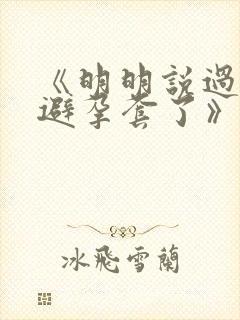 《明明說過
避孕套了》
冰飛雪蘭